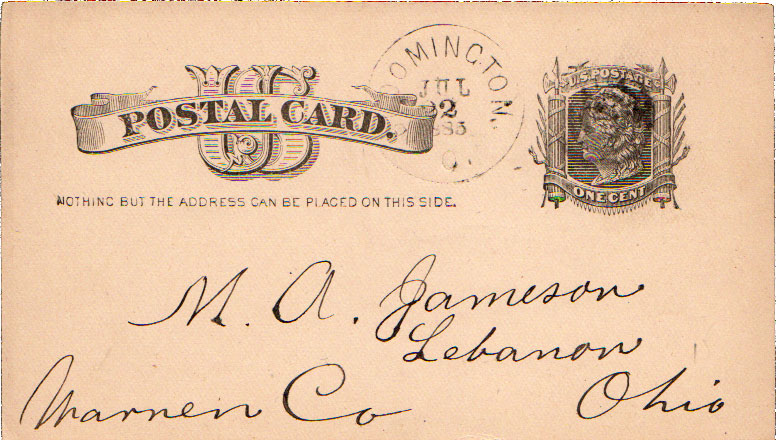 US
POSTAL CARD.
OMINGTON.
JUL
2
O.
U.S. POSTAGE
ONE CENT
NOTHING BUT THE ADDRESS CAN BE PLACED ON THIS SIDE.
M. A. Jameson
Lebanon
Warren Co Ohio